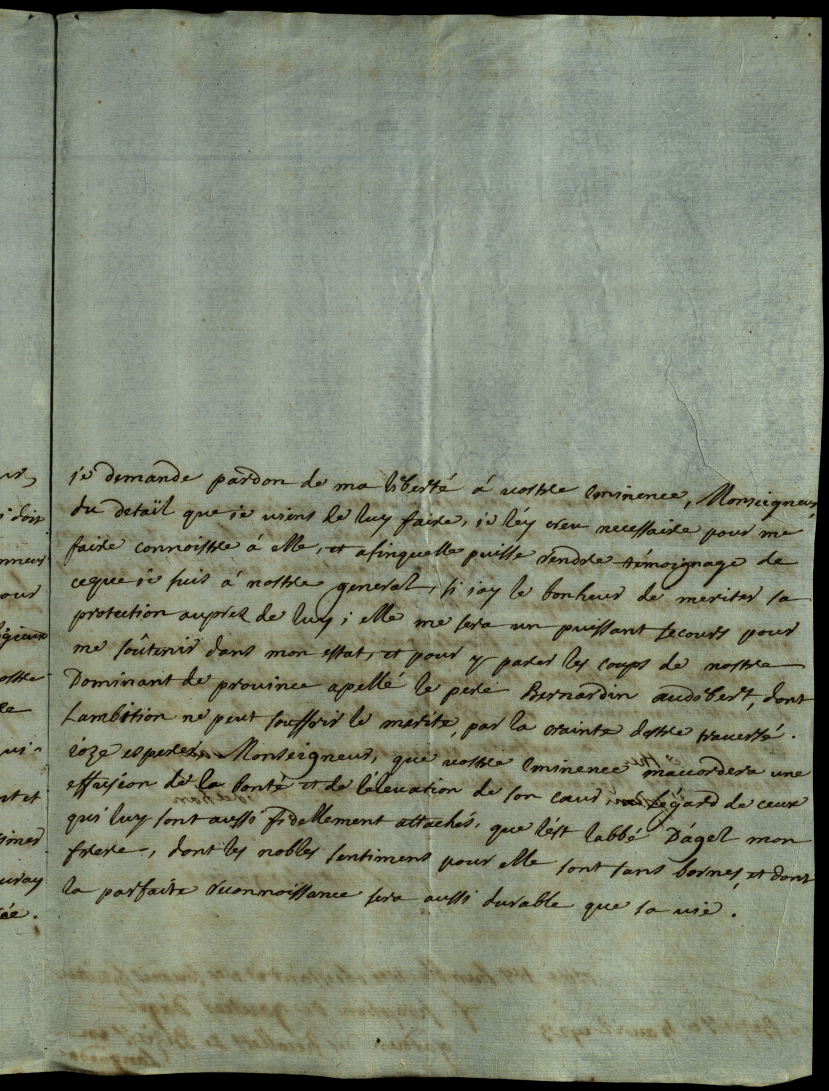 je demande pardon de ma liberté á vostre eminence, Monseigneur,
du detaïl que je viens de luy faire, je l'éy creu necessaire pour me
faire connoistre á elle, et afinquelle puisse rendre témoignage de
ceque je suis á nostre general, si j'ay le bonheur de meriter sa
protection auprez de luy; elle me sera un puissant secours pour
me soûtenir dans mon estat, et pour y parer les coups de nostre
Dominant de province apellé le pere Bernardin audibert, dont
Lambition ne peut souffrir le merite, par la crainte dostre traversé.
j'oze esperer, Monseigneur, que vostre eminence m'acordera une
effusion de la bonté et de l'elevation de son cœur, a l'égard de ceux
qui luy sont aussi fidellement attachés, que l'est l'abbé Dágel mon
frere, dont les nobles sentimens pour elle sont sans bornes, et dont
la parfaite reconnoissance sera aussi durable que sa vie.
doit
our
vostre
et